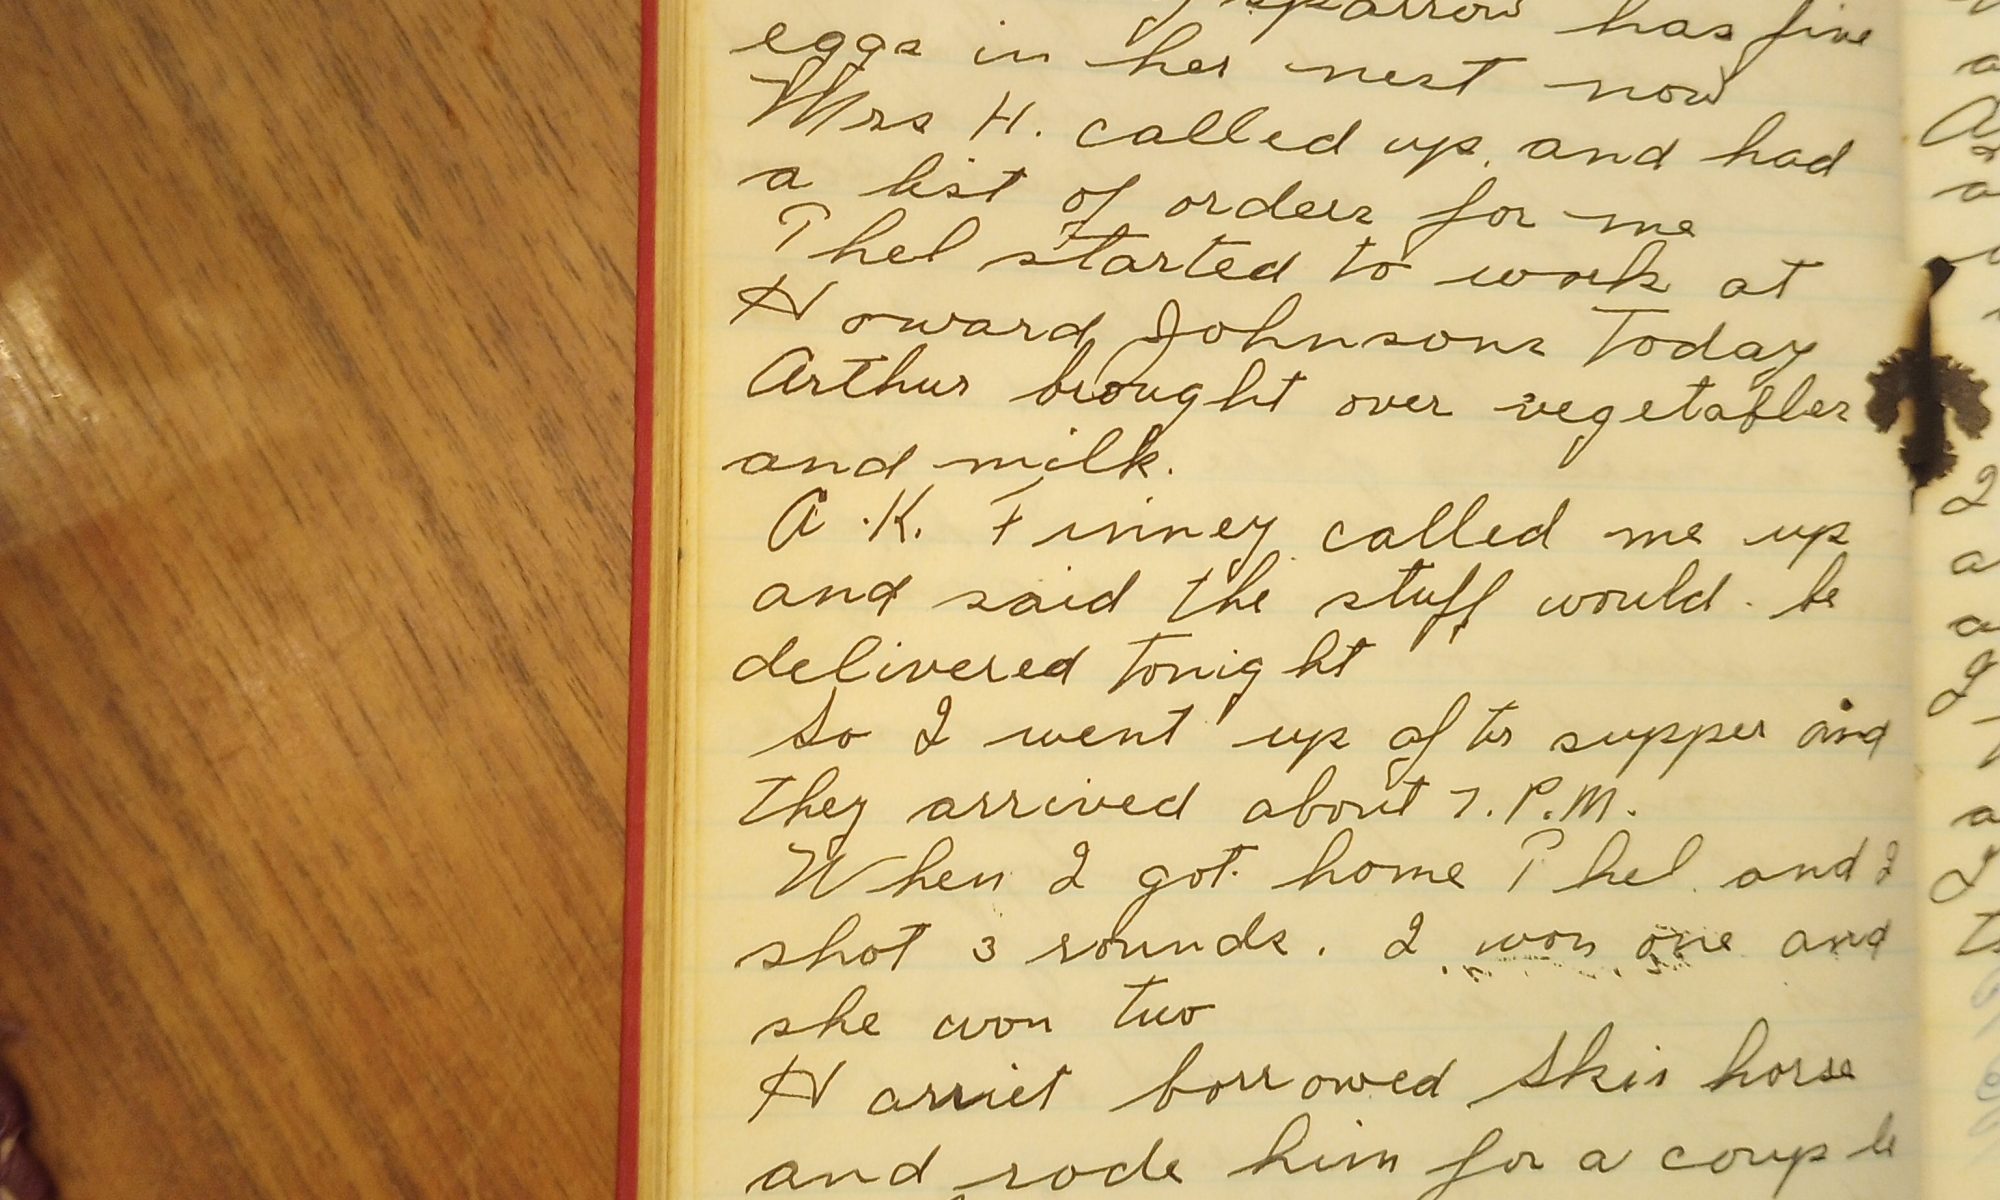 sparrow has five
eggs in her nest now
Mrs H. called up, and had
a list of orders for me
Phel started to work at
Howard Johnsons Today
Arthur brought over vegetables
and milk.
A.K. Finney called me up
and said the stuff would be
delivered Tonight
So I went up after supper and
they arrived about 7. P.M.
When I got home Phel and I
shot 3 rounds. I won one and
she won two
Harriet borrowed horse
and rode him for a couple